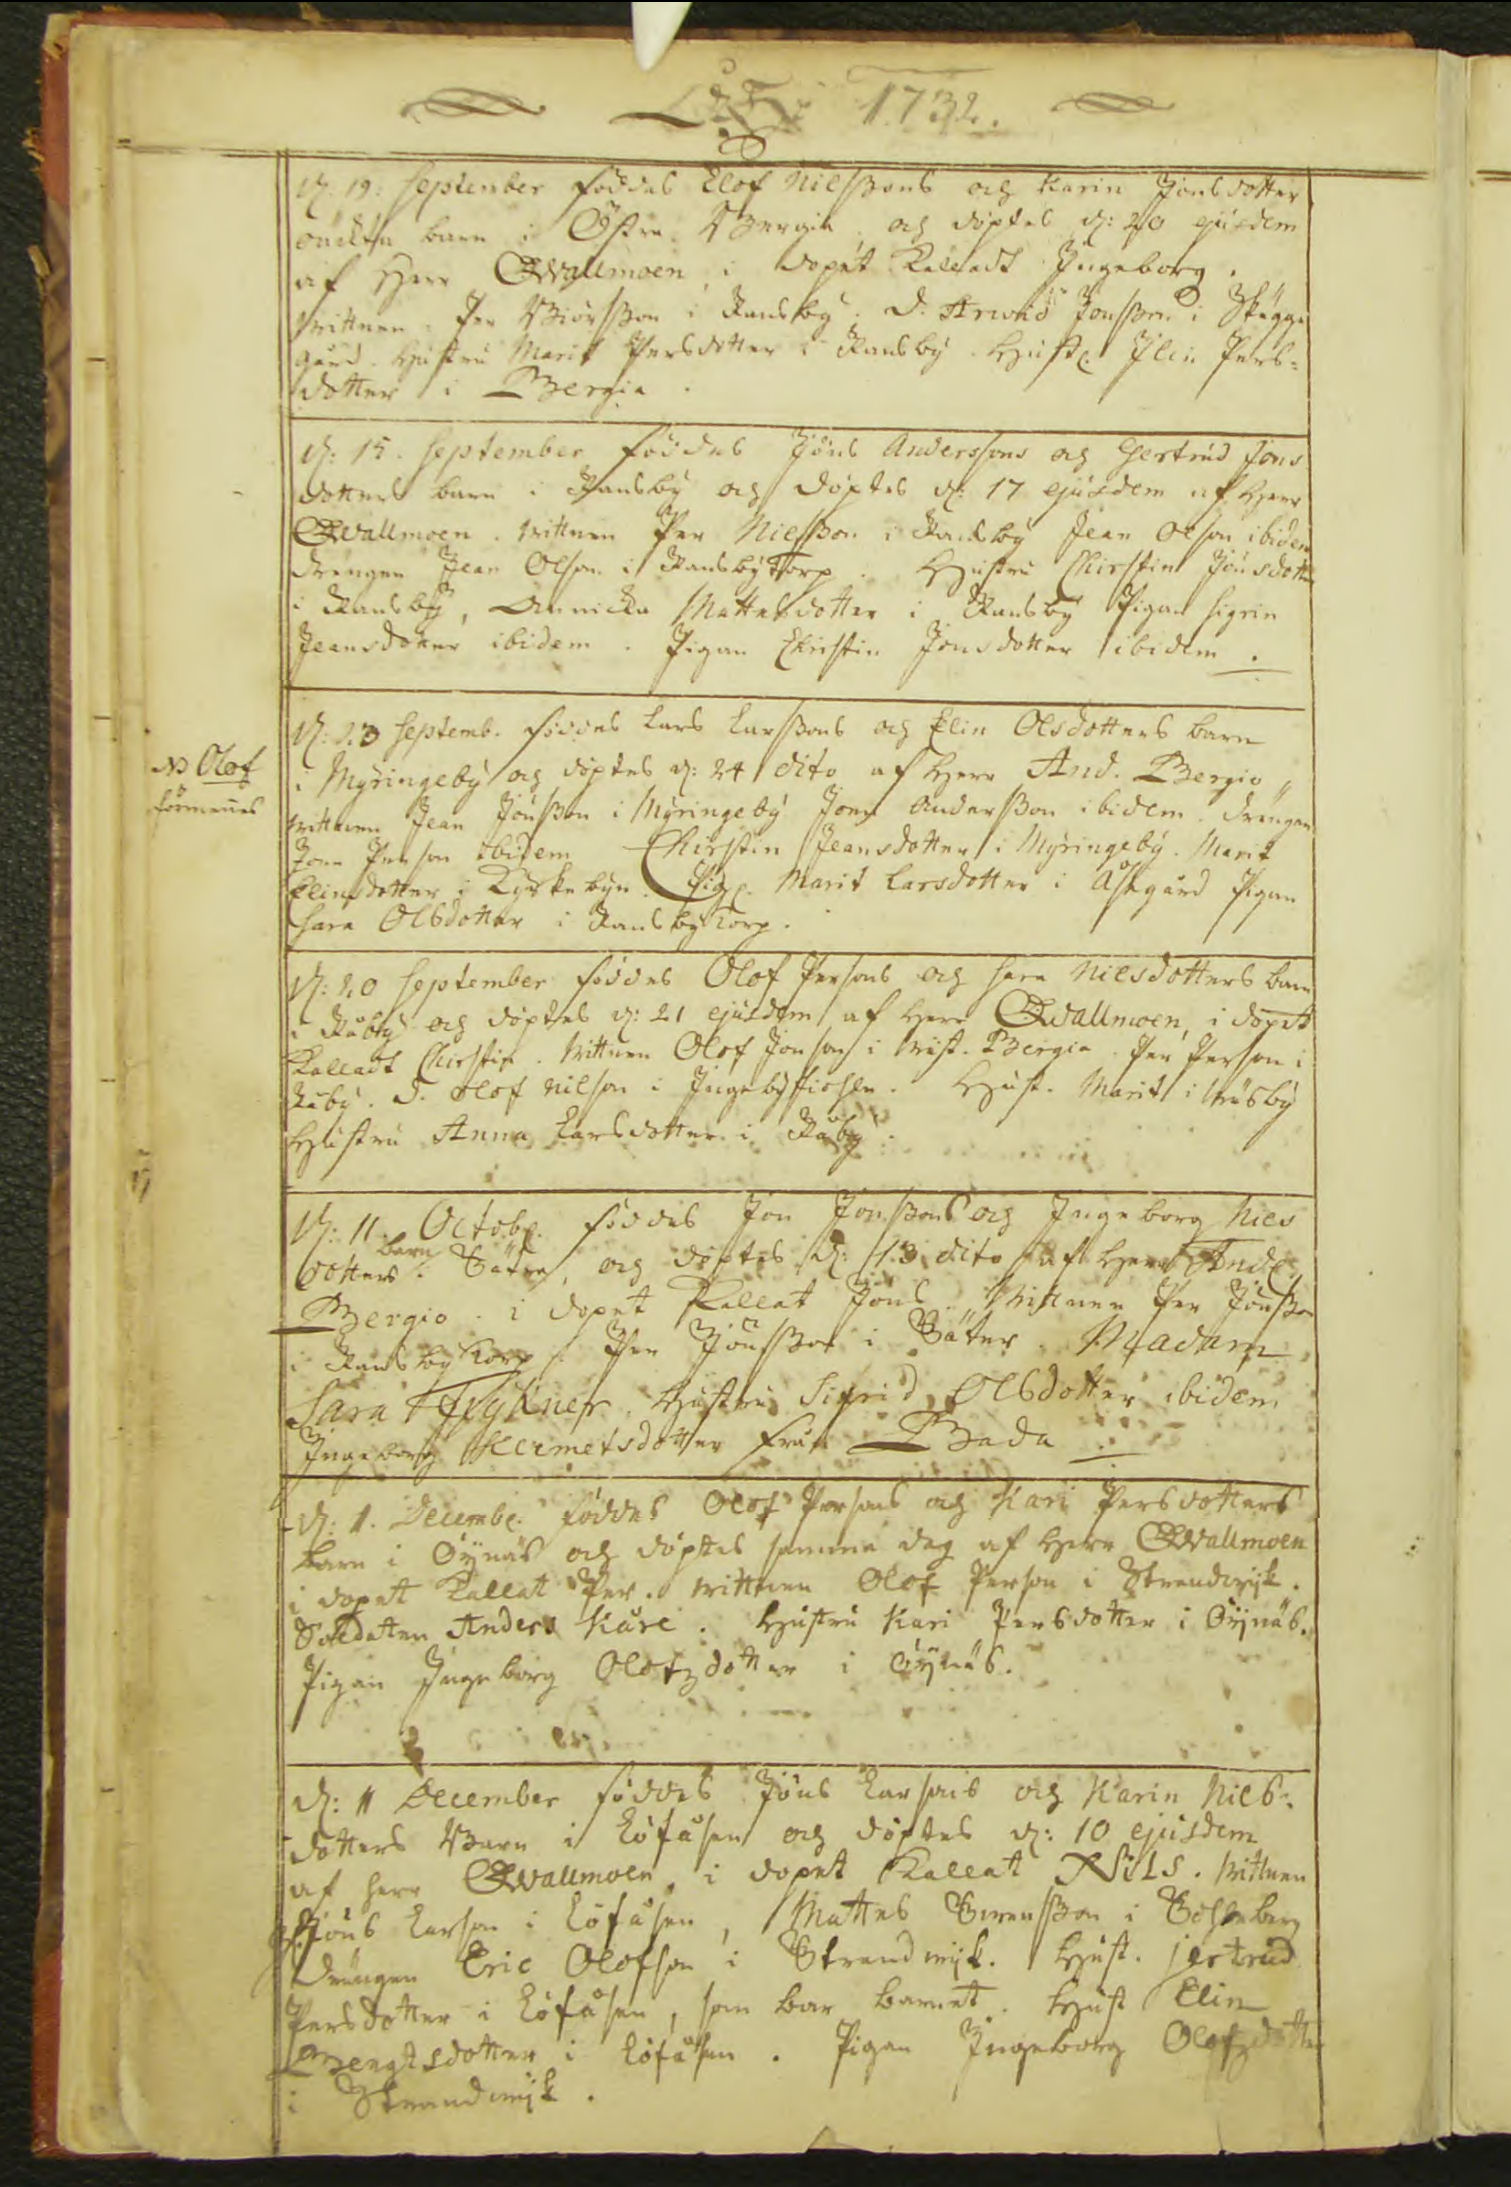 1732.
d. 19: September föddes Elof Nilssons och Karin Jonsdotter
barn i Östra Bergia, och döptes d: 20 ejusdem
af Herr Qwallmoen, i dopet kalladt Ingeborg.
Wittnen: Per Biörsson i Ransby. D. Arwid Jonsson i Skägga
gård. Hustru Marit Persdotter i Ransby. Hust. Elin Pers-
dotter i Bergia.
d: 15. September föddes Jöns Anderssons och Gertrud Jons
dotters barn i Ransby och döptes d: 17 ejusdem af Herr
Qwallmoen. Wittnen Per Nilsson i Ransby Jean Olson ibidem
Drengen Jean Olson i Ransbytorp. Hustru Chirstin Jonsdotter
i Ransby, Annicka Mattesdotter i Ransby Pigan Sigrin
Jeansdotter ibidem. Pigan Christin Jonsdotter ibidem.
d: 23 Septemb. föddes Lars Larssons och Elin Olsdotters barn
i Myringeby och döptes d: 24 dito af Herr And. Bergio,
Wittnen Jean Jonsson i Myringeby Jon Andersson ibidem. Drengen
Jon Person ibidem Chirstin Jeansdotter i Myringeby. Marit
Elinsdotter i Kyrkebyn. Pig. Marit Larsdotter i Åstgård Pigan
Sara Olsdotter i Ransbytorp.
NB Olof
förmenes
d: 20 September föddes Olof Persons och Sara Nilsdotters barn
i Råby och döptes d: 21 ejusdem af Herr Qwallmoen, i dopet
kalladt Chirstin. Wittnen Olof Jonson i Wäst. Bergia. Per Person i
Råby. D. Olof Nilson i Ingeby. Hust. Marit i Wäsby
Hustru Anna Larsdotter i Råby.
d: 11. Octob. föddes Jon Jonssons och Ingeborg Nils
dotters barn i Säter, och döptes d: 13 dito af Herr And.
Bergio. i dopet kallat Jöns. Wittnen Per Jonsson
i Ransbytorp. Per Jönsson i Säter. Madam
Sara Frykner. Hustru Sigrid Olsdotter ibidem
Ingeborg Helmetsdotter från Bada.
d: 1. Decemb. föddes Olof Persons och Kari Persdotters
barn i Öynäs och döptes samma dag af Herr Qwallmoen
i dopet kallat Per. Wittnen Olof Person i Strandwijk.
Soldaten Anders Kåre. Hustru Kari Persdotter i Öynäs.
Pigan Ingeborg Olofzdotter i Öynäs.
d: 11 December föddes Jöns Larsons och Karin Nils-
dotters Barn i Löfåsen och döptes d: 10 ejusdem
af Herr Qwallmoen, i dopet kallat Nils. Wittnen
Jöns Larson i Löfåsen, Mattes Swensson i
Drängen Eric Olofson i Strandwijk. Hust. jertrud
Persdotter i Löfåsen, som bar barnet. Hust Elin
Bengtsdotter i Löfåsen. Pigan Ingeborg Olofzdotter
i Strandwijk.